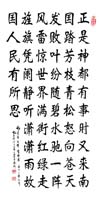 正是神都有事时又来南
国踏芳枝青松怒向苍天
发败叶纷随碧水驰一阵
风雷惊世界满街红绿走
旌旗凭阑静听潇潇雨故
国人民有所思